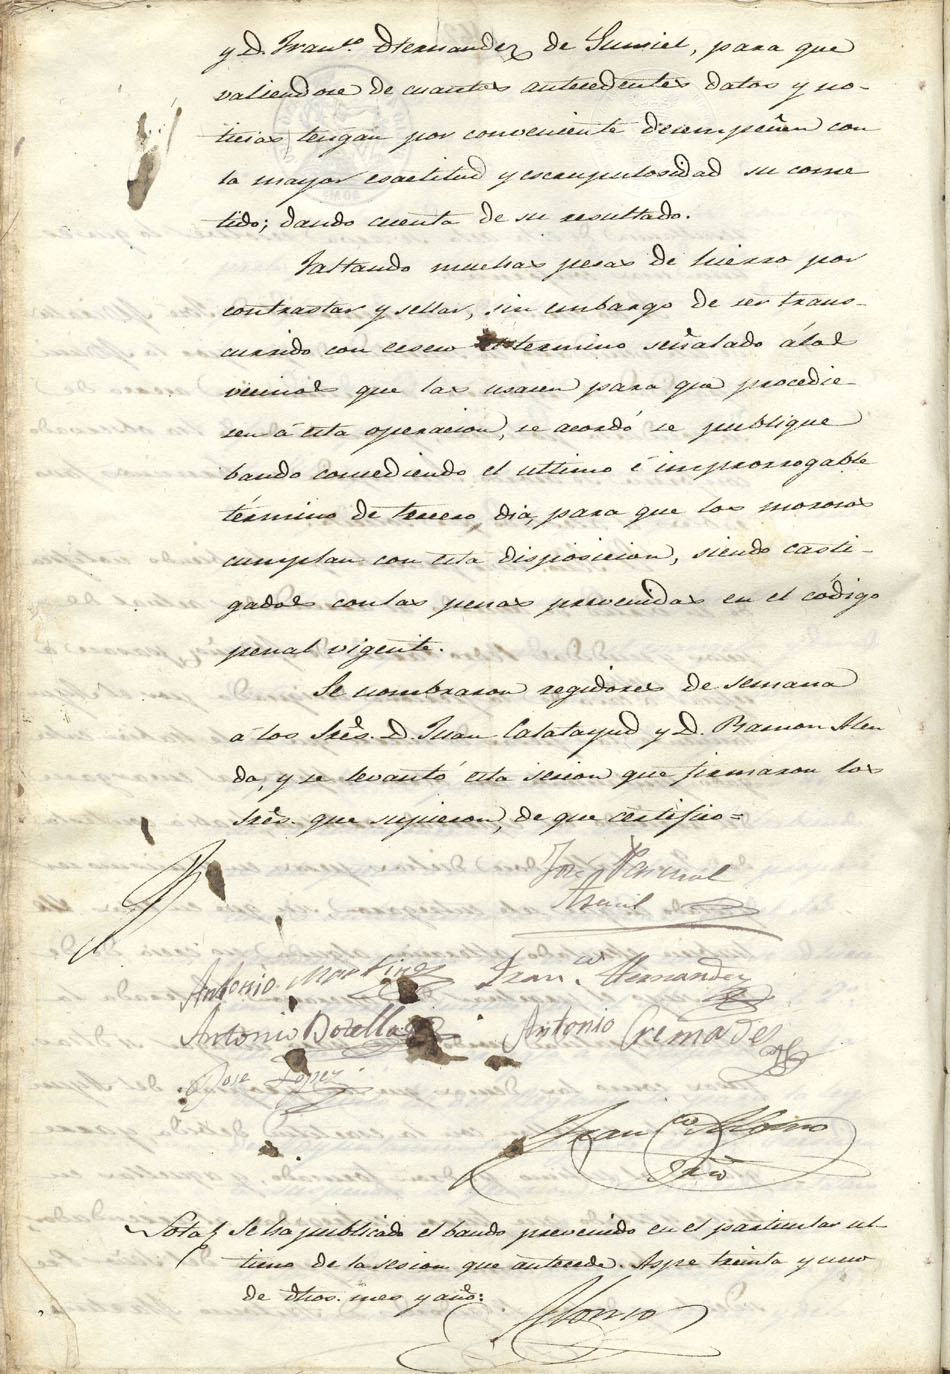 y D. Fran.co Hernandez de Gumiel, para que
valiendose de cuantos antecedentes datos y no-
ticias tengan por conveniente desempeñen con
la mayor esactitud y escrupulosidad su come
tido; dando cuenta de su resultado.
Faltando muchas pesas de hierro por
contrastar y sellar, sin embargo de ser trans-
currido con eseso el termino señalado á los
vecinos que las usasen para que procedie-
sen á esta operacion, se acordó se publique
bando concediendo el ultimo é improrrogable
término de tercero dia, para que los morosos
cumplan con esta disposicion, siendo casti-
gados con las penas prevenidas en el código
penal vigente.
Se nombraron regidores de semana
á los Sres. D. Juan Calatayud y D. Ramon Alen
da, y se levantó esta sesion que firmaron los
Sres. que supieron, de que certifico=
José Pascual
Antonio Martinez
Fran.co Hernandez
Antonio Botella
Antonio Cremades
Jose Lopez
Fran.co Alonso
Srio
Nota Se ha publicado el bando prevenido en el particular ul-
timo de la sesion que antecede. Aspe treinta y uno
de dhos. mes y año:
Alonso